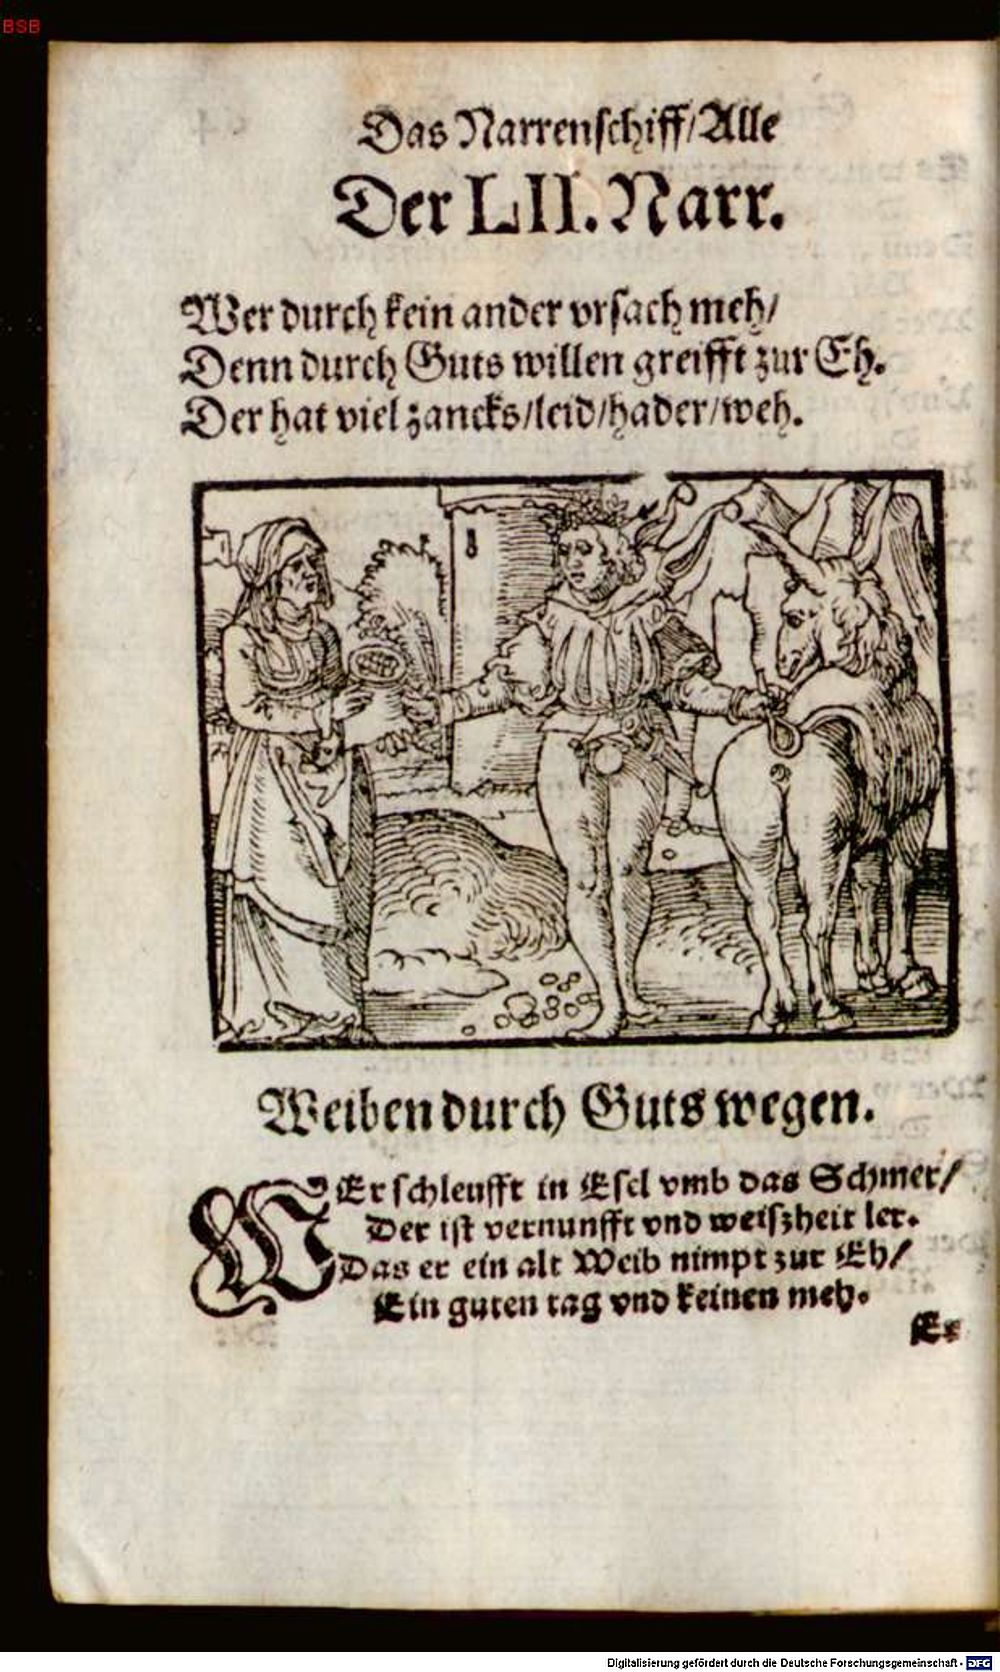 BSB
Das Narrenschiff/Alle
Der LII. Narr.
Wer durch kein ander vrsach meh/
Denn durch Guts willen greifft zur Eh.
Der hat viel zancks/leid/hader/weh.
Weiben durch Guts wegen.
WEr schleufft in Esel vmb das Schmer/
Der ist vernunfft vnd weiszheit ler.
Das er ein alt Weib nimpt zur Eh/
Ein guten tag vnd keinen meh.
Es
Digitalisierung gefördert durch die Deutsche Forschungsgemeinschaft - DFG